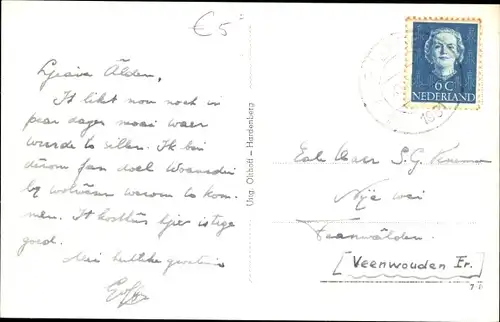 € 5
Ljeave Alden,
It likt nou noch in
pear dagen moai waer
wurde to sillen. Ik bin
dêrom fan doel Woansdei
by wolwêzen werom to kom-
men. It is hjir
goed.
Mei hertlike groetnis
Uitg. Olthoff - Hardenberg
6 C
NEDERLAND
Eale Hear S.G.
Nije wei
Feanwâlden.
[Veenwouden Fr.]